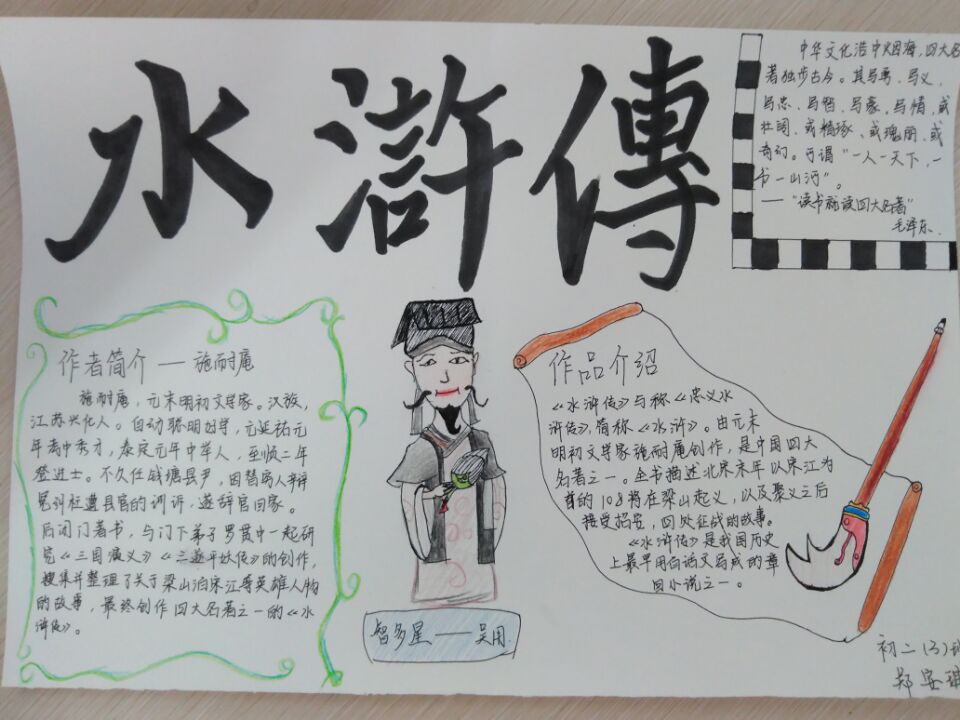 水滸傳
中华文化浩中如海,四大名
著独步古今。其写勇、写义、
写忠、写智、写豪、写情,或
壮阔、或精琢、或瑰丽、或
奇幻。可谓“一人一天下,一
书一山河”。
——“读书就读四大名著”
毛泽东.
作者简介 — 施耐庵
施耐庵,元末明初文学家。汉族,
江苏兴化人。自幼聪明好学,元延祐元
年考中秀才,泰定元年中举人,至顺二年
登进士。不久任钱塘县尹,因替穷人辩
冤纠枉遭县官的训斥,遂辞官回家。
后闭门著书,与门下弟子罗贯中一起研
究《三国演义》《三遂平妖传》的创作,
搜集并整理了关于梁山泊宋江等英雄人物
的故事,最终创作四大名著之一的《水
浒传》。
智多星——吴用.
作品介绍
《水浒传》与称《忠义水
浒传》,简称《水浒》。由元末
明初文学家施耐庵创作,是中国四大
名著之一。全书描述北宋末年以宋江为
首的108将在梁山起义,以及聚义之后
接受招安,四处征战的故事。
《水浒传》是我国历史
上最早用白话文写成的章
回小说之一。
初二(3)班
郑安